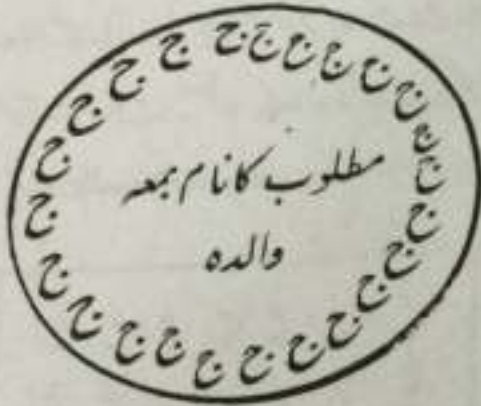 ج ج ج ج ج ج ج ج ج ج ج ج ج ج ج ج ج ج ج ج ج ج ج ج ج
مطلوب کا نام بمعہ
والدہ